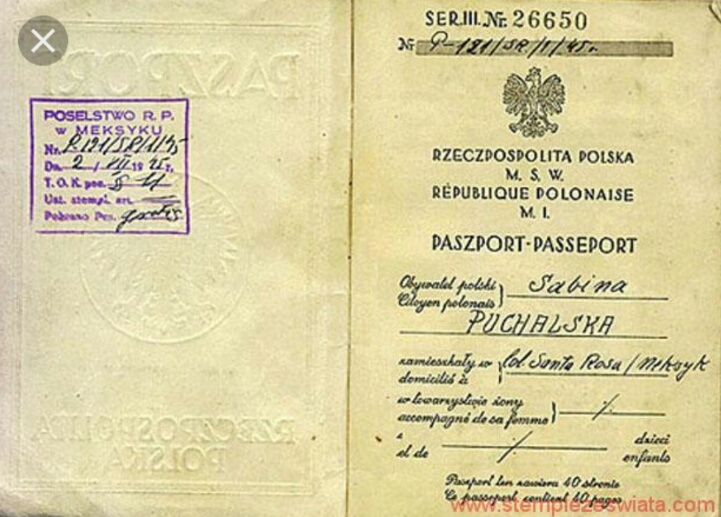 PASZPORT
POSELSTWO R. P.
W MEKSYKU
Nr. P-121/SR/1/45
Dn. 2 / VII 1945 r.
T. O. K. poz. 8
Ust. stempl. art.
Pobrano Pes. gratis
RZECZPOSPOLITA
POLSKA
SER.III. Nr. 26650
Nr P-121/SR/1/45 r.
RZECZPOSPOLITA POLSKA
M. S. W.
RÉPUBLIQUE POLONAISE
M. I.
PASZPORT-PASSEPORT
Obywatel polski
Citoyen polonais
Sabina
PUCHALSKA
zamieszkały w
domicilié à
Col. Santa Rosa / Meksyk
w towarzystwie żony
accompagné de sa femme
z dzieci
et de enfants
Paszport ten zawiera 40 stronic
Ce passeport contient 40 pages
www.stemplezeswiata.com